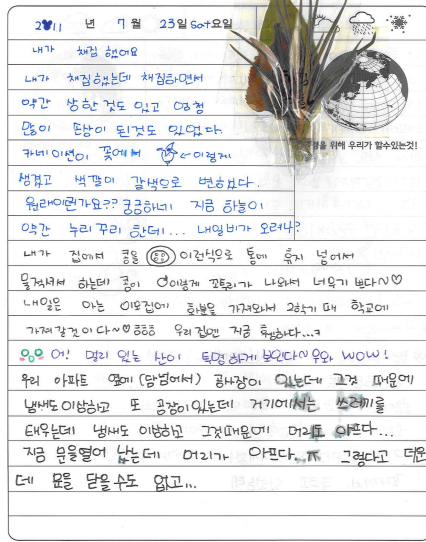 2011 년 7 월 23일 sat요일
내가 채집 했어요
내가 채집했는데 채집하면서
약간 상한것도 있고 엄청
많이 손상이 된것도 있었다.
카네이션이 꽃에서 ←이렇게
생겼고 색깔이 갈색으로 변하였다.
환경을 위해 우리가 할수있는것!
원래이런가요?? 궁금하네 지금 하늘이
약간 누리꾸리 한데... 내일비가 오려나?
내가 집에서 콩을 이런식으로 통에 휴지 넣어서
물적셔서 하는데 콩이 이렇게 꼬투리가 나와서 너무기쁘다~♡
내일은 아는 이모집에 화분을 가져와서 2학기 때 학교에
가져갈것이다~♡ 우리집엔 지금 휑하다...ㅋ
어! 멀리 있는 산이 투명하게 보인다~우와 wow!
우리 아파트 옆에(담넘어서) 공사장이 있는데 그것 때문에
냄새도이상하고 또 공장이있는데 거기에서는 쓰레기를
태우는데 냄새도 이상하고 그것때문에 머리도 아프다...
지금 문을열어 놨는데 머리가 아프다.ㅠ 그렇다고 더운
데 문을 닫을수도 없고...